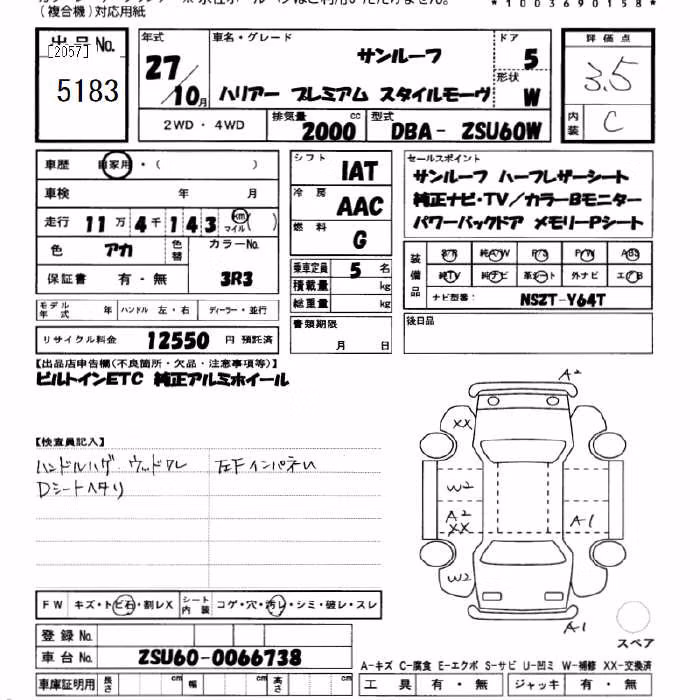 (複合機)対応用紙
*1003690158*
出品No.
[2057]
5183
年式 車名・グレード ドア
サンルーフ 5
27/10月 形状
ハリアー プレミアム スタイルモーヴ W
2WD・4WD 排気量 2000 cc 型式 DBA- ZSU60W
評価点
3.5
内装 C
車歴 自家用・( )
車検 年 月
走行 11万4千143 km マイル( )
色 アカ 色替 カラーNo.
保証書 有・無 3R3
モデル年式 年 ハンドル 左・右 ディーラー・並行
リサイクル料金 12550 円 預託済
シフト IAT
冷房 AAC
燃料 G
乗車定員 5 名
積載量 kg
総重量 kg
書類期限
月 日
セールスポイント
サンルーフ ハーフレザーシート
純正ナビ・TV/カラーBモニター
パワーバックドア メモリーPシート
装備品 S/R 純A/W P/S P/W ABS
純TV 純ナビ 革シート 外ナビ エアB
ナビ型番: NSZT-Y64T
後日品
【出品店申告欄(不良箇所・欠品・注意事項等)】
ビルトインETC 純正アルミホイール
【検査員記入】
ハンドルハゲ・ウッドワレ 左Fインパネハレ
Dシートヘタリ
FW キズ・トビ石・割レX シート内装 コゲ・穴・汚レ・シミ・破レ・スレ
登録No.
車台No. ZSU60-0066738
車庫証明用 長さ cm 幅 cm 高さ cm
A2
XX
W2
A2
XX
A1
W2
A1
スペア
A-キズ C-腐食 E-エクボ S-サビ U-凹ミ W-補修 XX-交換済
工具 有・無 ジャッキ 有・無